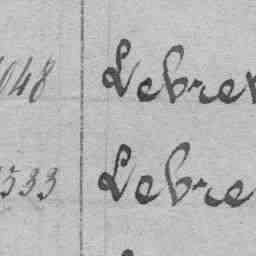 1048 Lebret
1533 Lebre